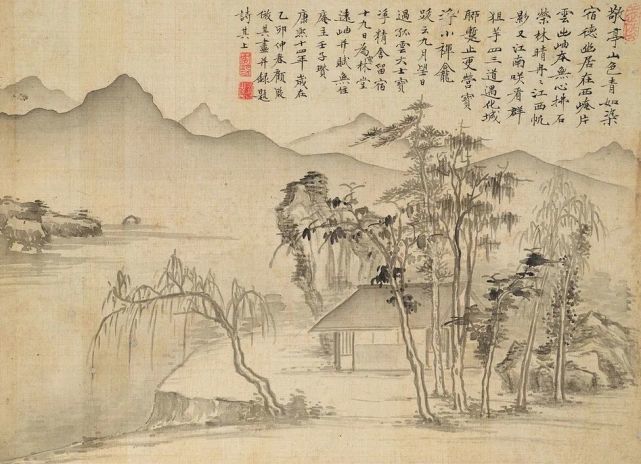 敬亭山色青如染
宿德幽居在西峰片
雲出岫本無心拂石
縈林晴冉〻江西帆
影又江南咲看群
狙芧四三道過化城
聊憩止更營寶
浮小禪龕
九月望日
過孤雲大士寶
浮精舍留宿
十九日為林堂
遠岫并賦無住
庵主 子瓚
康熙十四年歲在
乙卯仲春顧殷
倣其畫并錄題
詩其上